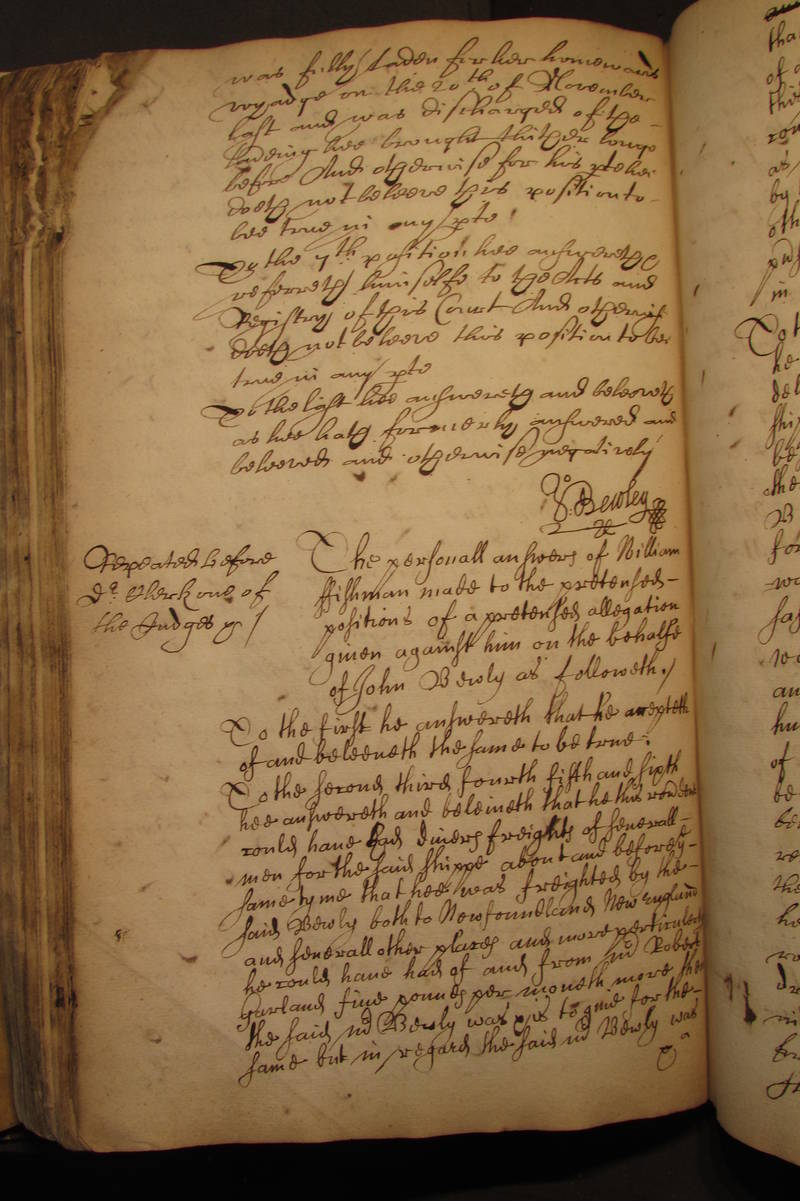 was fully laden for her homewards
voyadge on the 20th of November
last and was discharged of the
ladeing hee brought thither longe
before And otherwise for his pte hee
doeth not beleeve this position to
bee true in any pte
To the 7th position hee answereth
referreth himselfe to the Acts and
Registry of this Court And otherwise
doeth not beleeve this position to bee
true in any pte
To the last hee answereth and beleeveth
as hee hath formerly answered and
beleeved and otherwise negatively
Bewley
Repeated before
Dr. Clerk one of
the Judges &
The personall answers of William
ffishman made to the pretensed
positions of a pretensed allegation
given against him on the behalfe
of John Bewly as followeth /
To the first he answereth that he accepteth
of and beleeveth the same to be true.
To the second third fourth fifth and sixth
hee answereth and beleiveth that he this rendent
could have had divers freights of severall
men for the said shippe about and before the
same tyme that hee was freighted by the
said Bewly both to Newfoundland New England
and severall other places and more perticularly
he could have had of and from mr Robert
Garland five pounds per moneth more then
the said mr Bewly was to give for the
same but in regard the said mr Bewly was